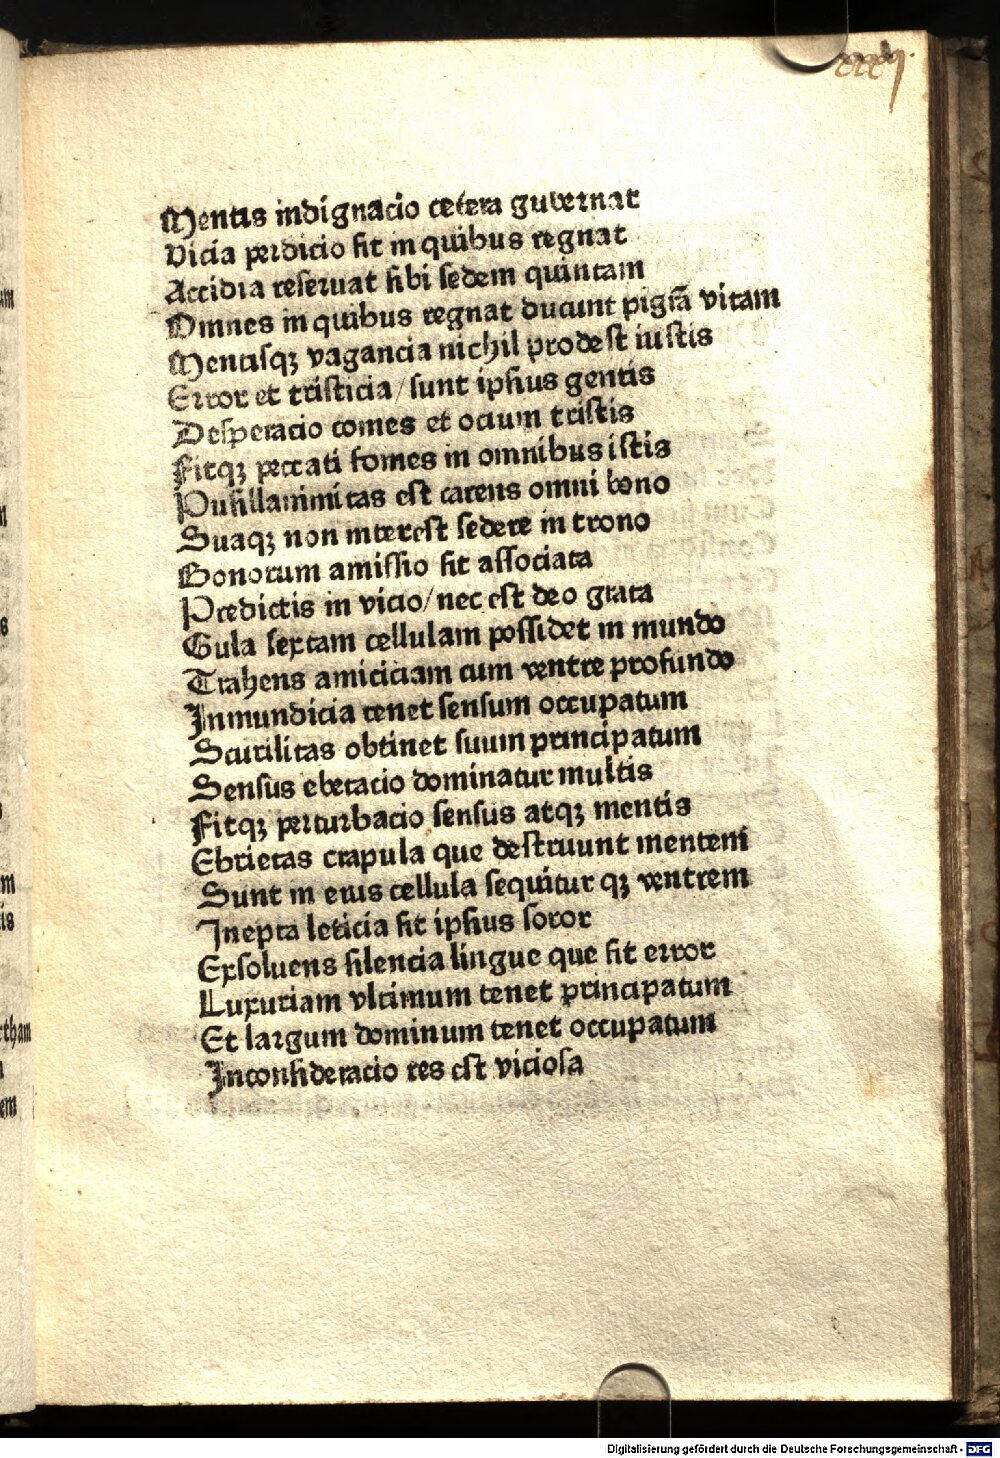 xxxij.
Mentis indignacio cetera guvernat
Vicia perdicio fit in quibus regnat
Accidia reseruat sibi sedem quintam
Omnes in quibus regnat ducunt pigrā vitam
Mentisqꝫ vagancia nichil prodest iustis
Error et tristicia/ sunt ipsius gentis
Desperacio comes et ocium tristis
Fitqꝫ peccati fomes in omnibus istis
Pusillanimitas est carens omni bono
Suaqꝫ non interest sedere in trono
Bonorum amissio fit associata
Predictis in vicio/ nec est deo grata
Gula sextam cellulam possidet in mundo
Trahens amiciciam cum ventre profundo
Inmundicia tenet sensum occupatum
Scurilitas obtinet suum principatum
Sensus ebetacio dominatur multis
Fitqꝫ perturbacio sensus atqꝫ mentis
Ebrietas crapula que destruunt mentem
Sunt in eius cellula sequitur qꝫ ventrem
Inepta leticia fit ipsius soror
Exsoluens silencia lingue que fit error
Luxuriam vltimum tenet principatum
Et largum dominum tenet occupatum
Inconsideracio res est viciosa
Digitalisierung gefördert durch die Deutsche Forschungsgemeinschaft - DFG